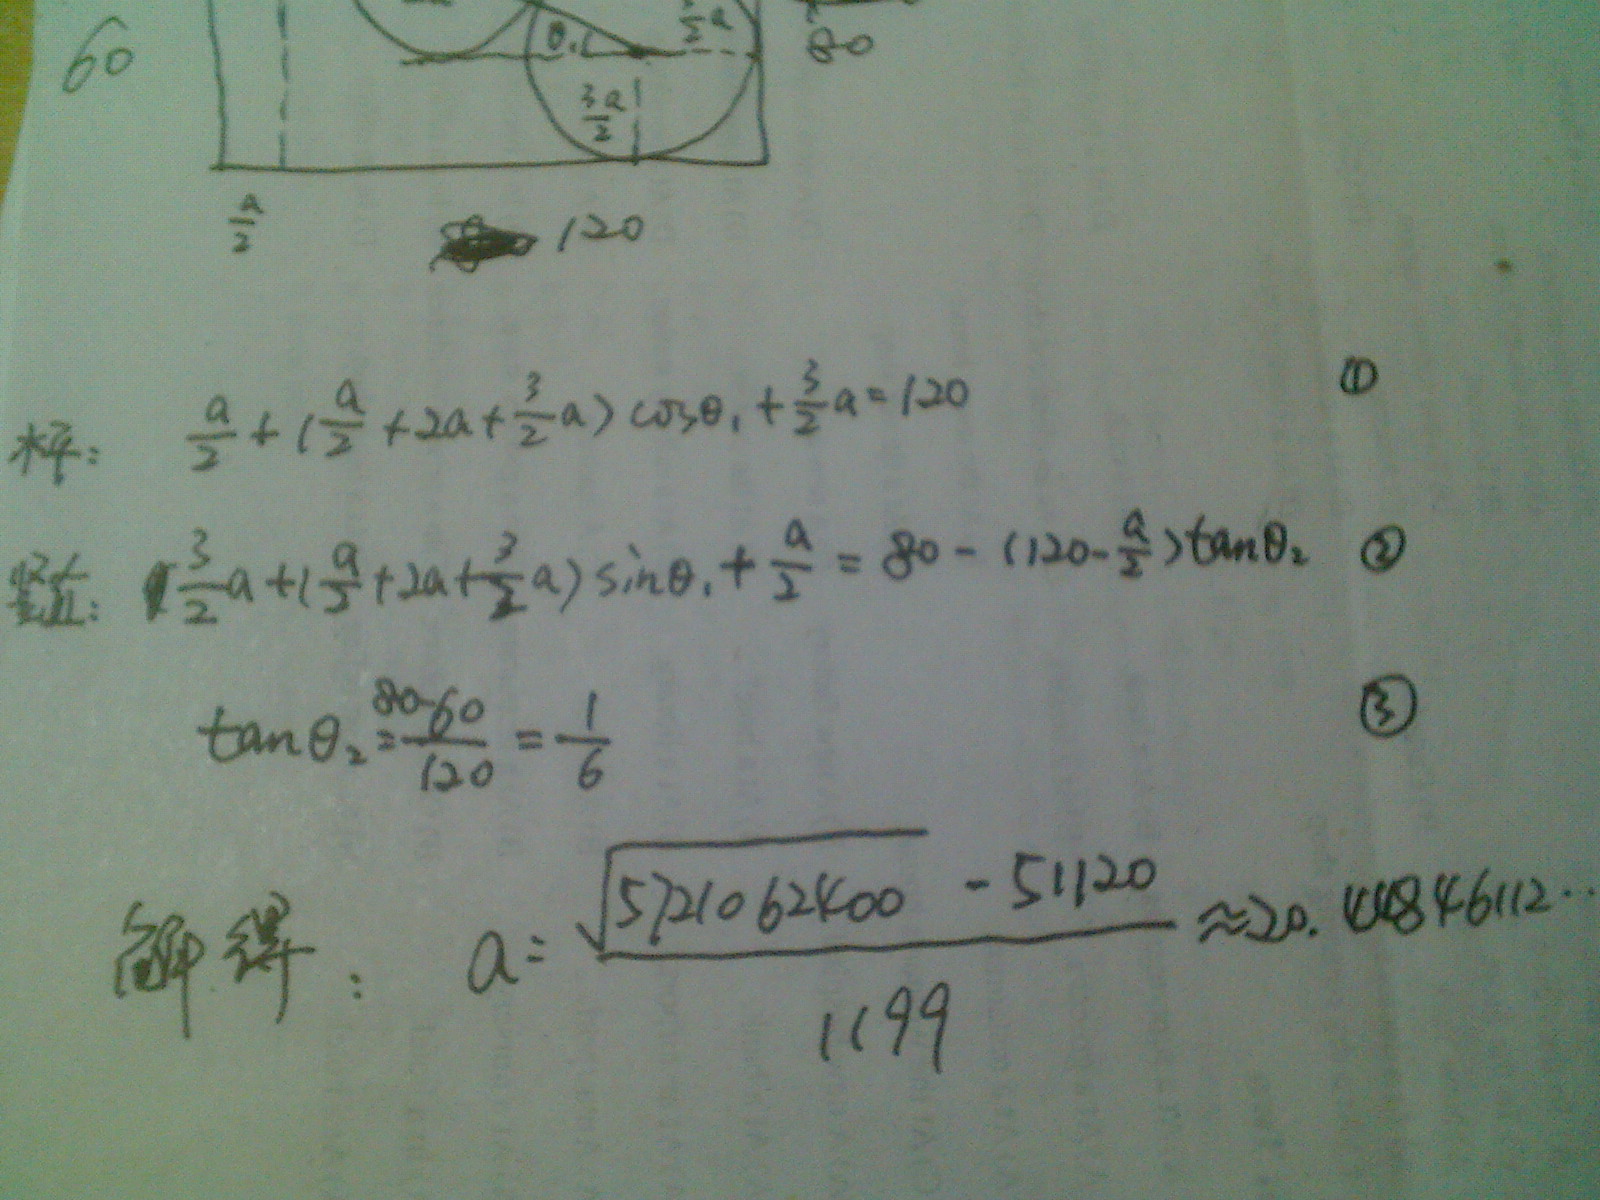 60
θ₁
3/2 a
80
3a/2
a/2
120
水平: a/2 + (a/2 + 2a + 3/2 a) cosθ₁ + 3/2 a = 120 ①
竖直: 3/2 a + (a/2 + 2a + 3/2 a) sinθ₁ + a/2 = 80 - (120 - a/2) tanθ₂ ②
tanθ₂ = 80-60/120 = 1/6 ③
解得: a = √5721062400 - 51120 / 1199 ≈ 20.44846112…